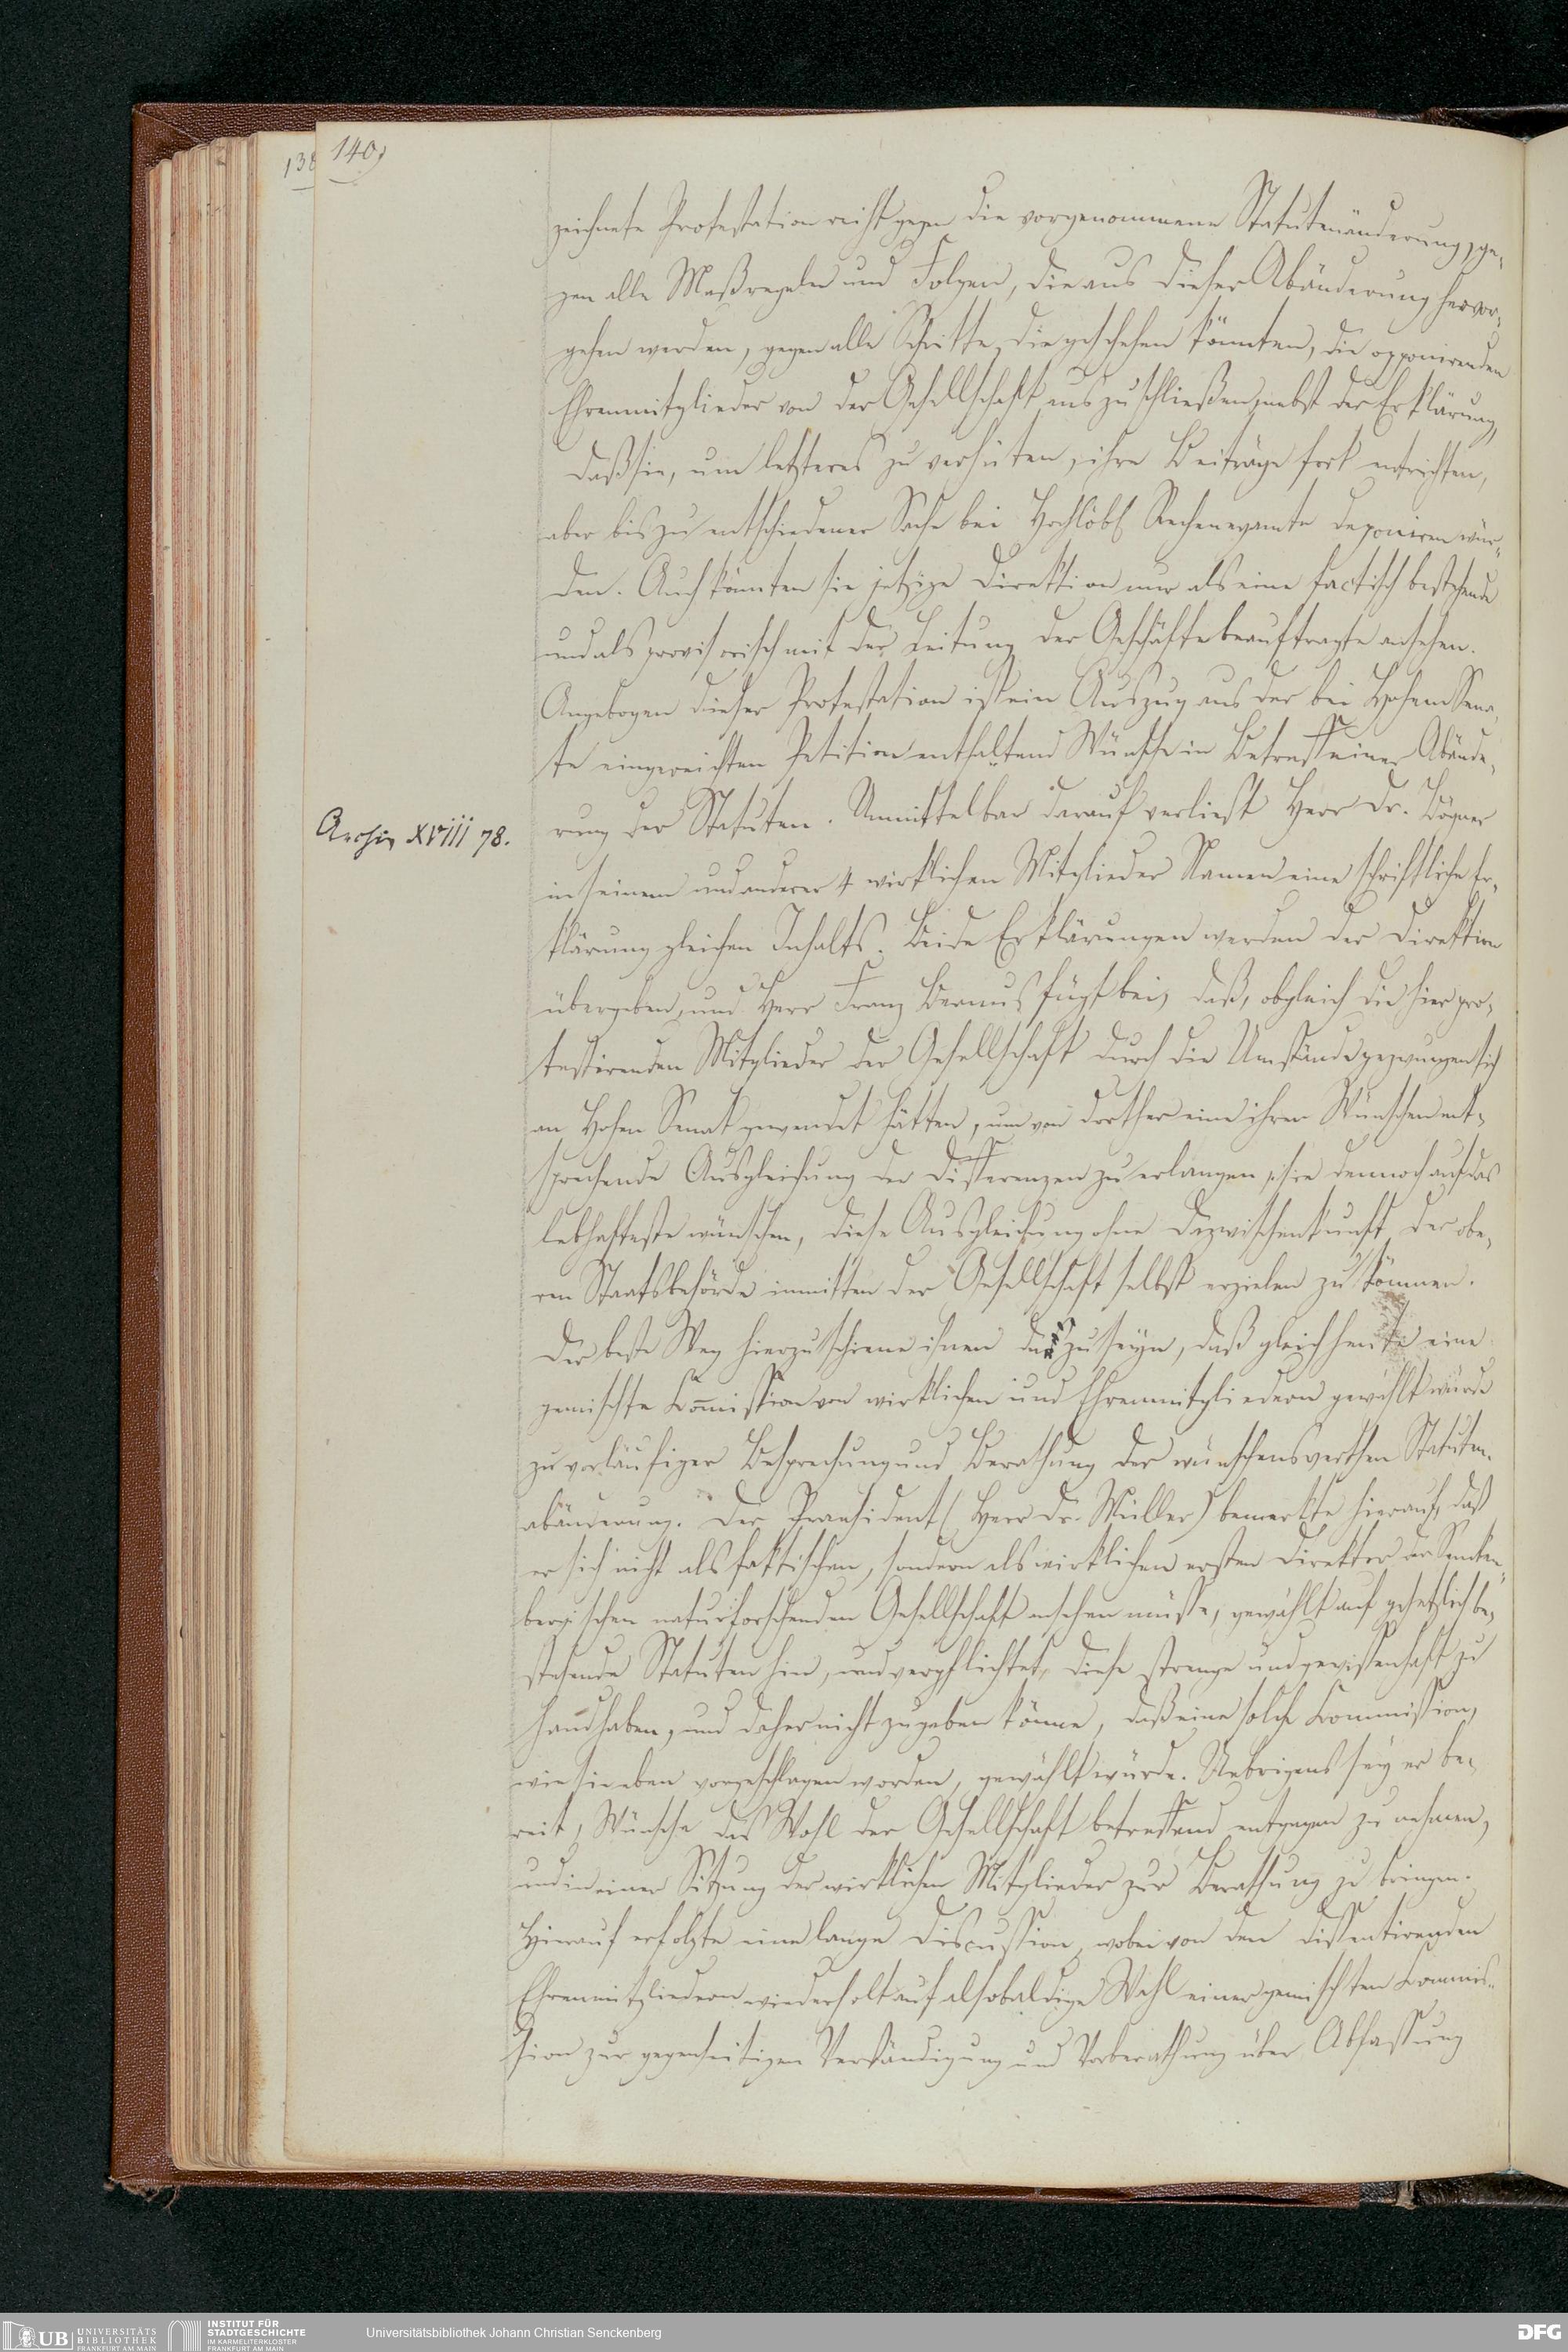 138
140,
zeichnete Protestation reicht gegen die vorgenommene Statutenänderung, ge-
gen alle Maßregeln und Folgen, die aus dieser Abänderung hervor-
gehen werden, gegen alle Schritte die geschehen könnten, die opponirenden
Ehrenmitglieder von der Gesellschaft auszuschließen, nebst der Erklärung,
daß sie, um letzteres zu verhüten, ihre Beiträge fort entrichten,
aber bis zu entschiedener Sache bei Hochlöbl. Recheneyamte deponiren wür-
den. Auch könnten sie jetzige Direktion nur als eine factisch bestehende
und als provisorisch mit der Leitung der Geschäfte beauftragte ansehen.
Angebogen dieser Protestation ist ein Auszug aus der bei Hohem Sena-
te eingereichten Petition enthaltend Wünsche in Betreff einer Abände-
rung der Statuten. Unmittelbar darauf verliest Herr Dr.
Archiv XVIII 78.
in seinem und anderer 4 wirklichen Mitglieder Namen eine schriftliche Er-
klärung gleichen Inhalts. Beide Erklärungen werden der Direktion
übergeben, und Herr Franz Bernus fügt bei, daß, obgleich die hier pro-
testirenden Mitglieder der Gesellschaft durch die Umstände gezwungen sich
an Hohen Senat gewendet hätten, um von dorther eine ihren Wünschen ent-
sprechende Ausgleichung der Differenzen zu erlangen, sie dennoch auf das
lebhafteste wünschen, diese Ausgleichung ohne Dazwischenkunft der obe-
ren Staatsbehörde inmitten der Gesellschaft selbst erzielen zu können.
Der beste Weg hierzu schiene ihnen der zu seyn, daß gleich heute eine
gemischte Commission von wirklichen und Ehrenmitgliedern gewählt würde
zu vorläufiger Besprechung und Berathung der wünschenswerthen Statuten-
abänderung. Der Praesident (Herr Dr. Müller) bemerkte hierauf, daß
er sich nicht als faktischen, sondern als wirklichen ersten Direktor der Senken-
bergischen naturforschenden Gesellschaft ansehen müsse, gewählt auf gesetzlich be-
stehende Statuten hin, und verpflichtet, diese strenge und gewissenhaft zu
handhaben, und daher nicht zugeben könne, daß eine solche Commission,
wie sie eben vorgeschlagen worden, gewählt würde. Uebrigens sey er be-
reit, Wünsche das Wohl der Gesellschaft betreffend entgegen zu nehmen,
und in einer Sitzung der wirklichen Mitglieder zur Berathung zu bringen.
Hierauf erfolgte eine lange Discussion, wobei von den dissentirenden
Ehrenmitgliedern wiederholt auf alsobaldige Wahl einer gemischten Commis-
sion zur gegenseitigen Verständigung und Vorberathung über Abfassung
UB UNIVERSITÄTS
BIBLIOTHEK
FRANKFURT AM MAIN
INSTITUT FÜR
STADTGESCHICHTE
IM KARMELITERKLOSTER
FRANKFURT AM MAIN
Universitätsbibliothek Johann Christian Senckenberg
DFG